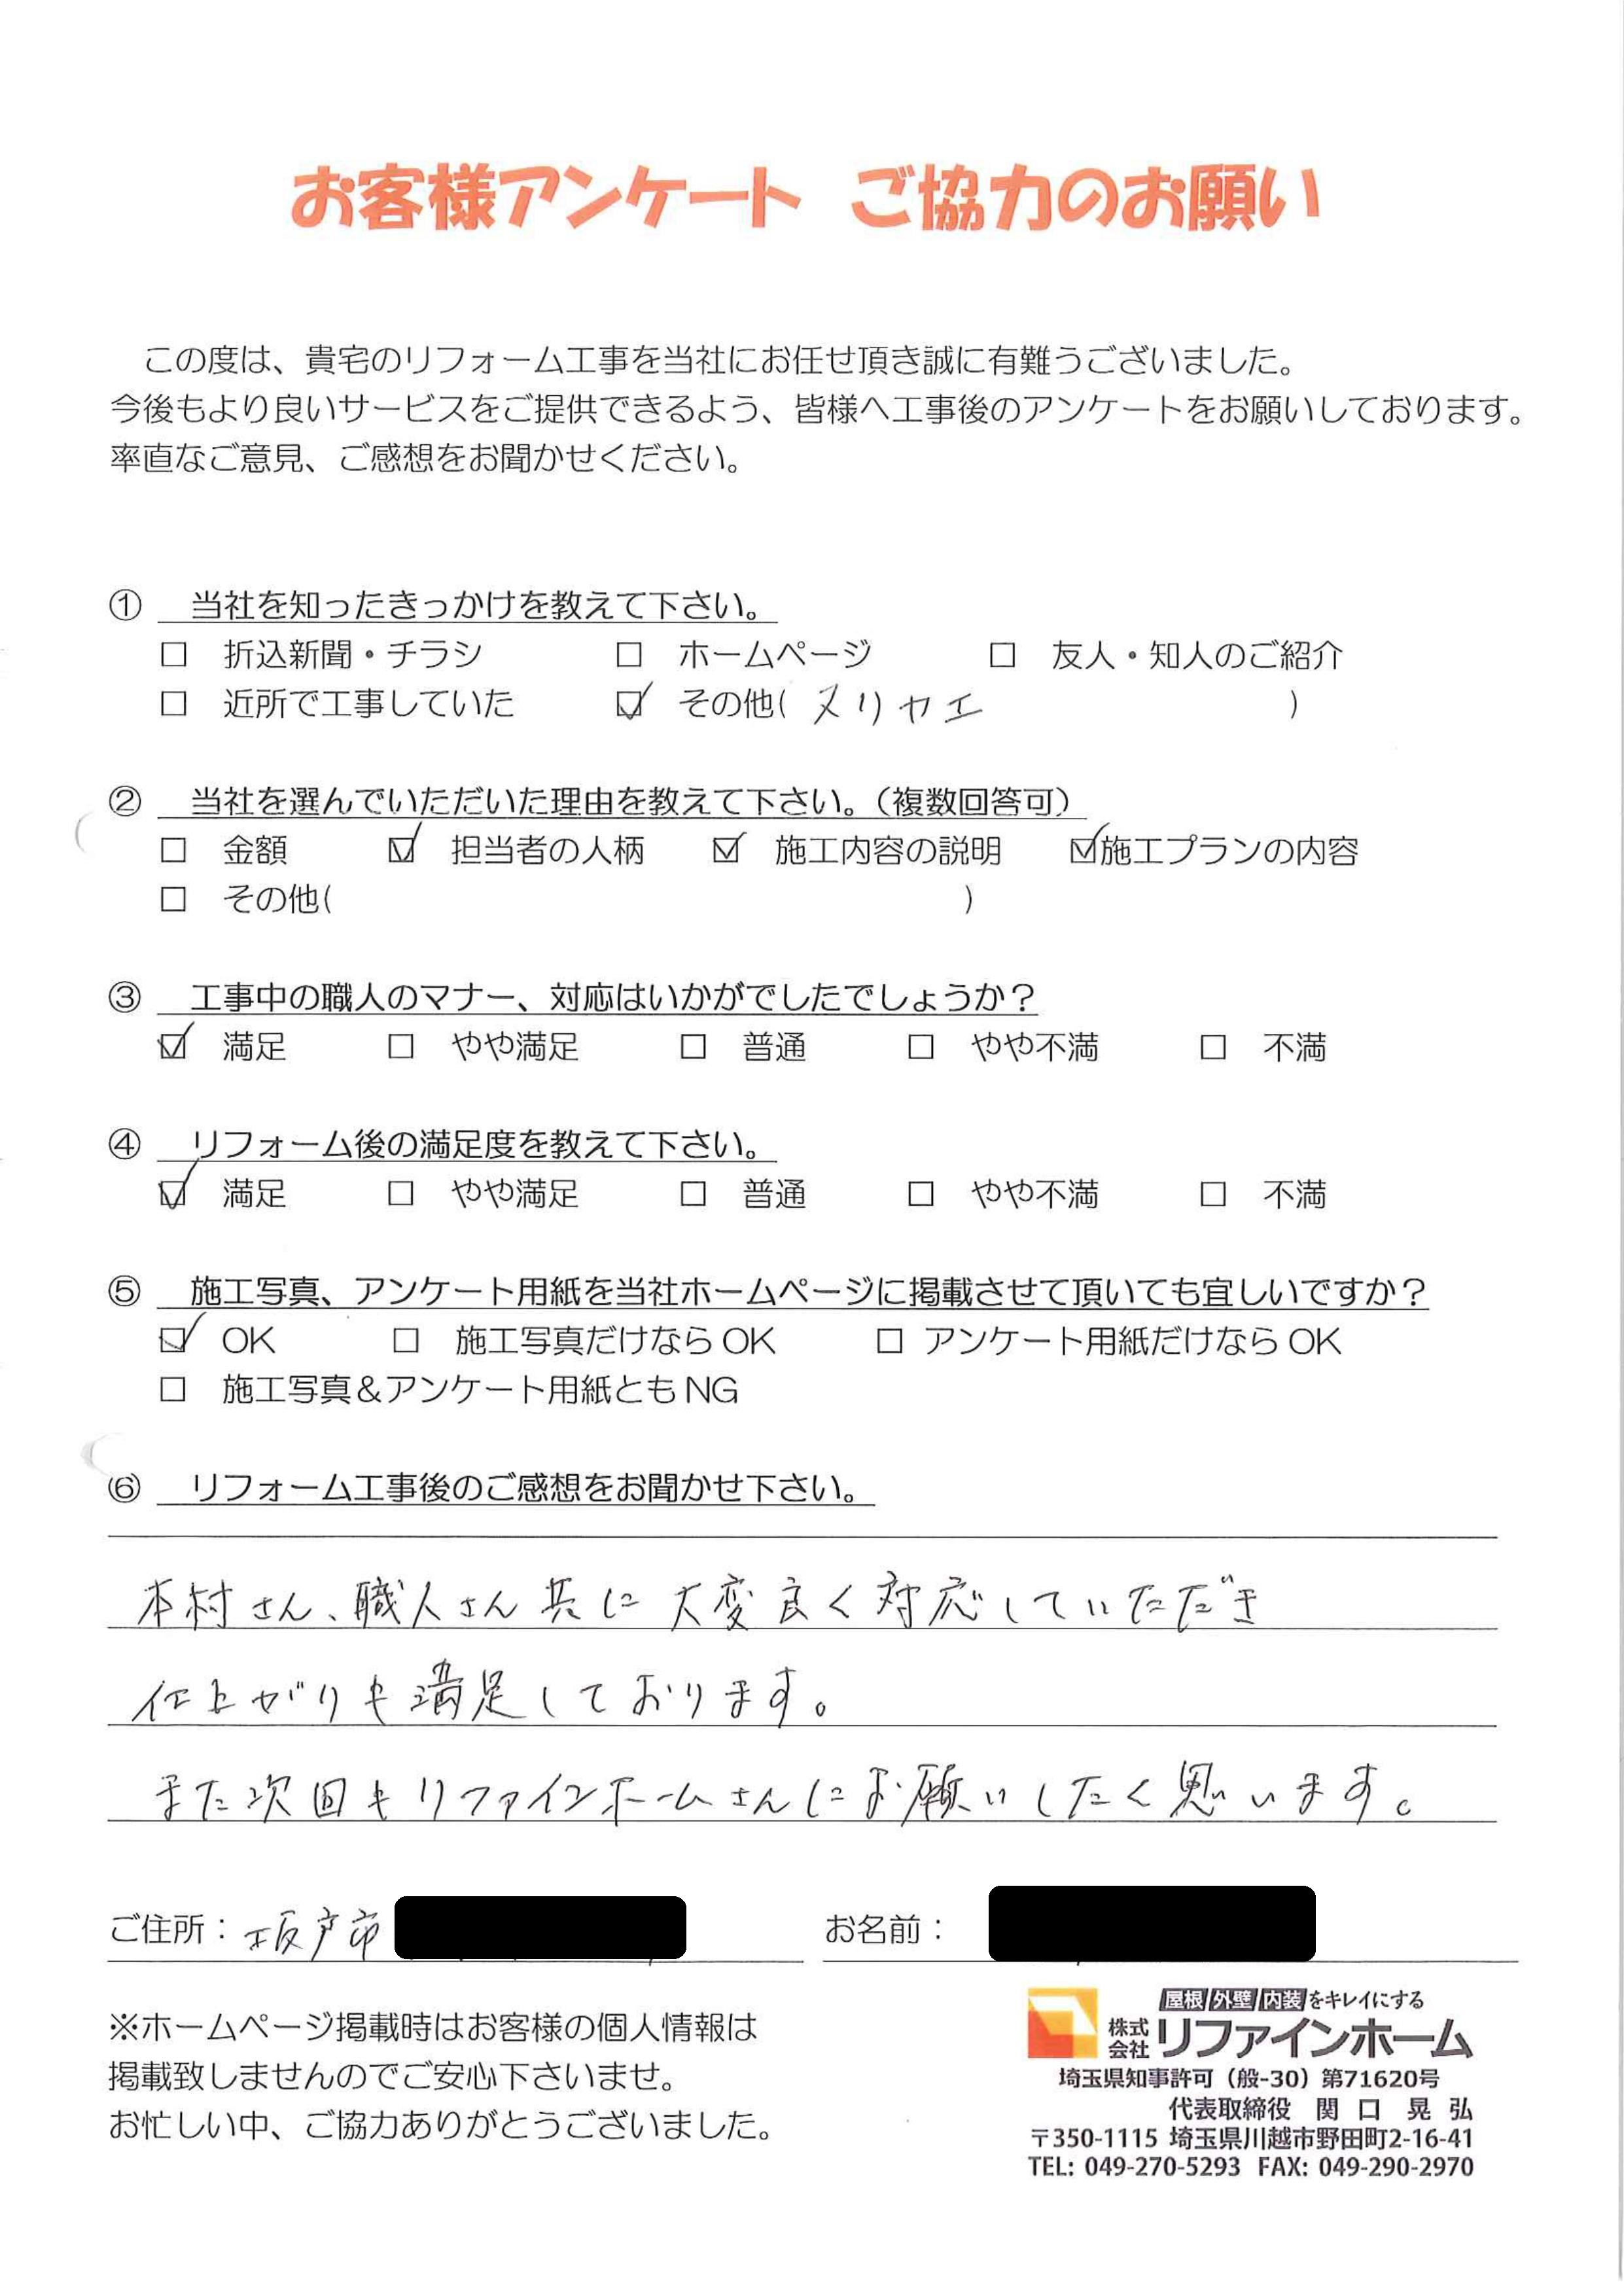 お客様アンケート ご協力のお願い
この度は、貴宅のリフォーム工事を当社にお任せ頂き誠に有難うございました。
今後もより良いサービスをご提供できるよう、皆様へ工事後のアンケートをお願いしております。
率直なご意見、ご感想をお聞かせください。
① 当社を知ったきっかけを教えて下さい。
□ 折込新聞・チラシ □ ホームページ □ 友人・知人のご紹介
□ 近所で工事していた ☑ その他( ヌリカエ )
② 当社を選んでいただいた理由を教えて下さい。（複数回答可）
□ 金額 ☑ 担当者の人柄 ☑ 施工内容の説明 ☑施工プランの内容
□ その他( )
③ 工事中の職人のマナー、対応はいかがでしたでしょうか？
☑ 満足 □ やや満足 □ 普通 □ やや不満 □ 不満
④ リフォーム後の満足度を教えて下さい。
☑ 満足 □ やや満足 □ 普通 □ やや不満 □ 不満
⑤ 施工写真、アンケート用紙を当社ホームページに掲載させて頂いても宜しいですか？
☑ OK □ 施工写真だけなら OK □ アンケート用紙だけなら OK
□ 施工写真＆アンケート用紙とも NG
⑥ リフォーム工事後のご感想をお聞かせ下さい。
本村さん、職人さん共に大変良く対応していただき
仕上がりも満足しております。
また次回もリファインホームさんにお願いしたく思います。
ご住所： 坂戸市 お名前：
※ホームページ掲載時はお客様の個人情報は
掲載致しませんのでご安心下さいませ。
お忙しい中、ご協力ありがとうございました。
屋根/外壁/内装をキレイにする
株式会社 リファインホーム
埼玉県知事許可（般-30）第71620号
代表取締役 関 口 晃 弘
〒350-1115 埼玉県川越市野田町2-16-41
TEL: 049-270-5293 FAX: 049-290-2970